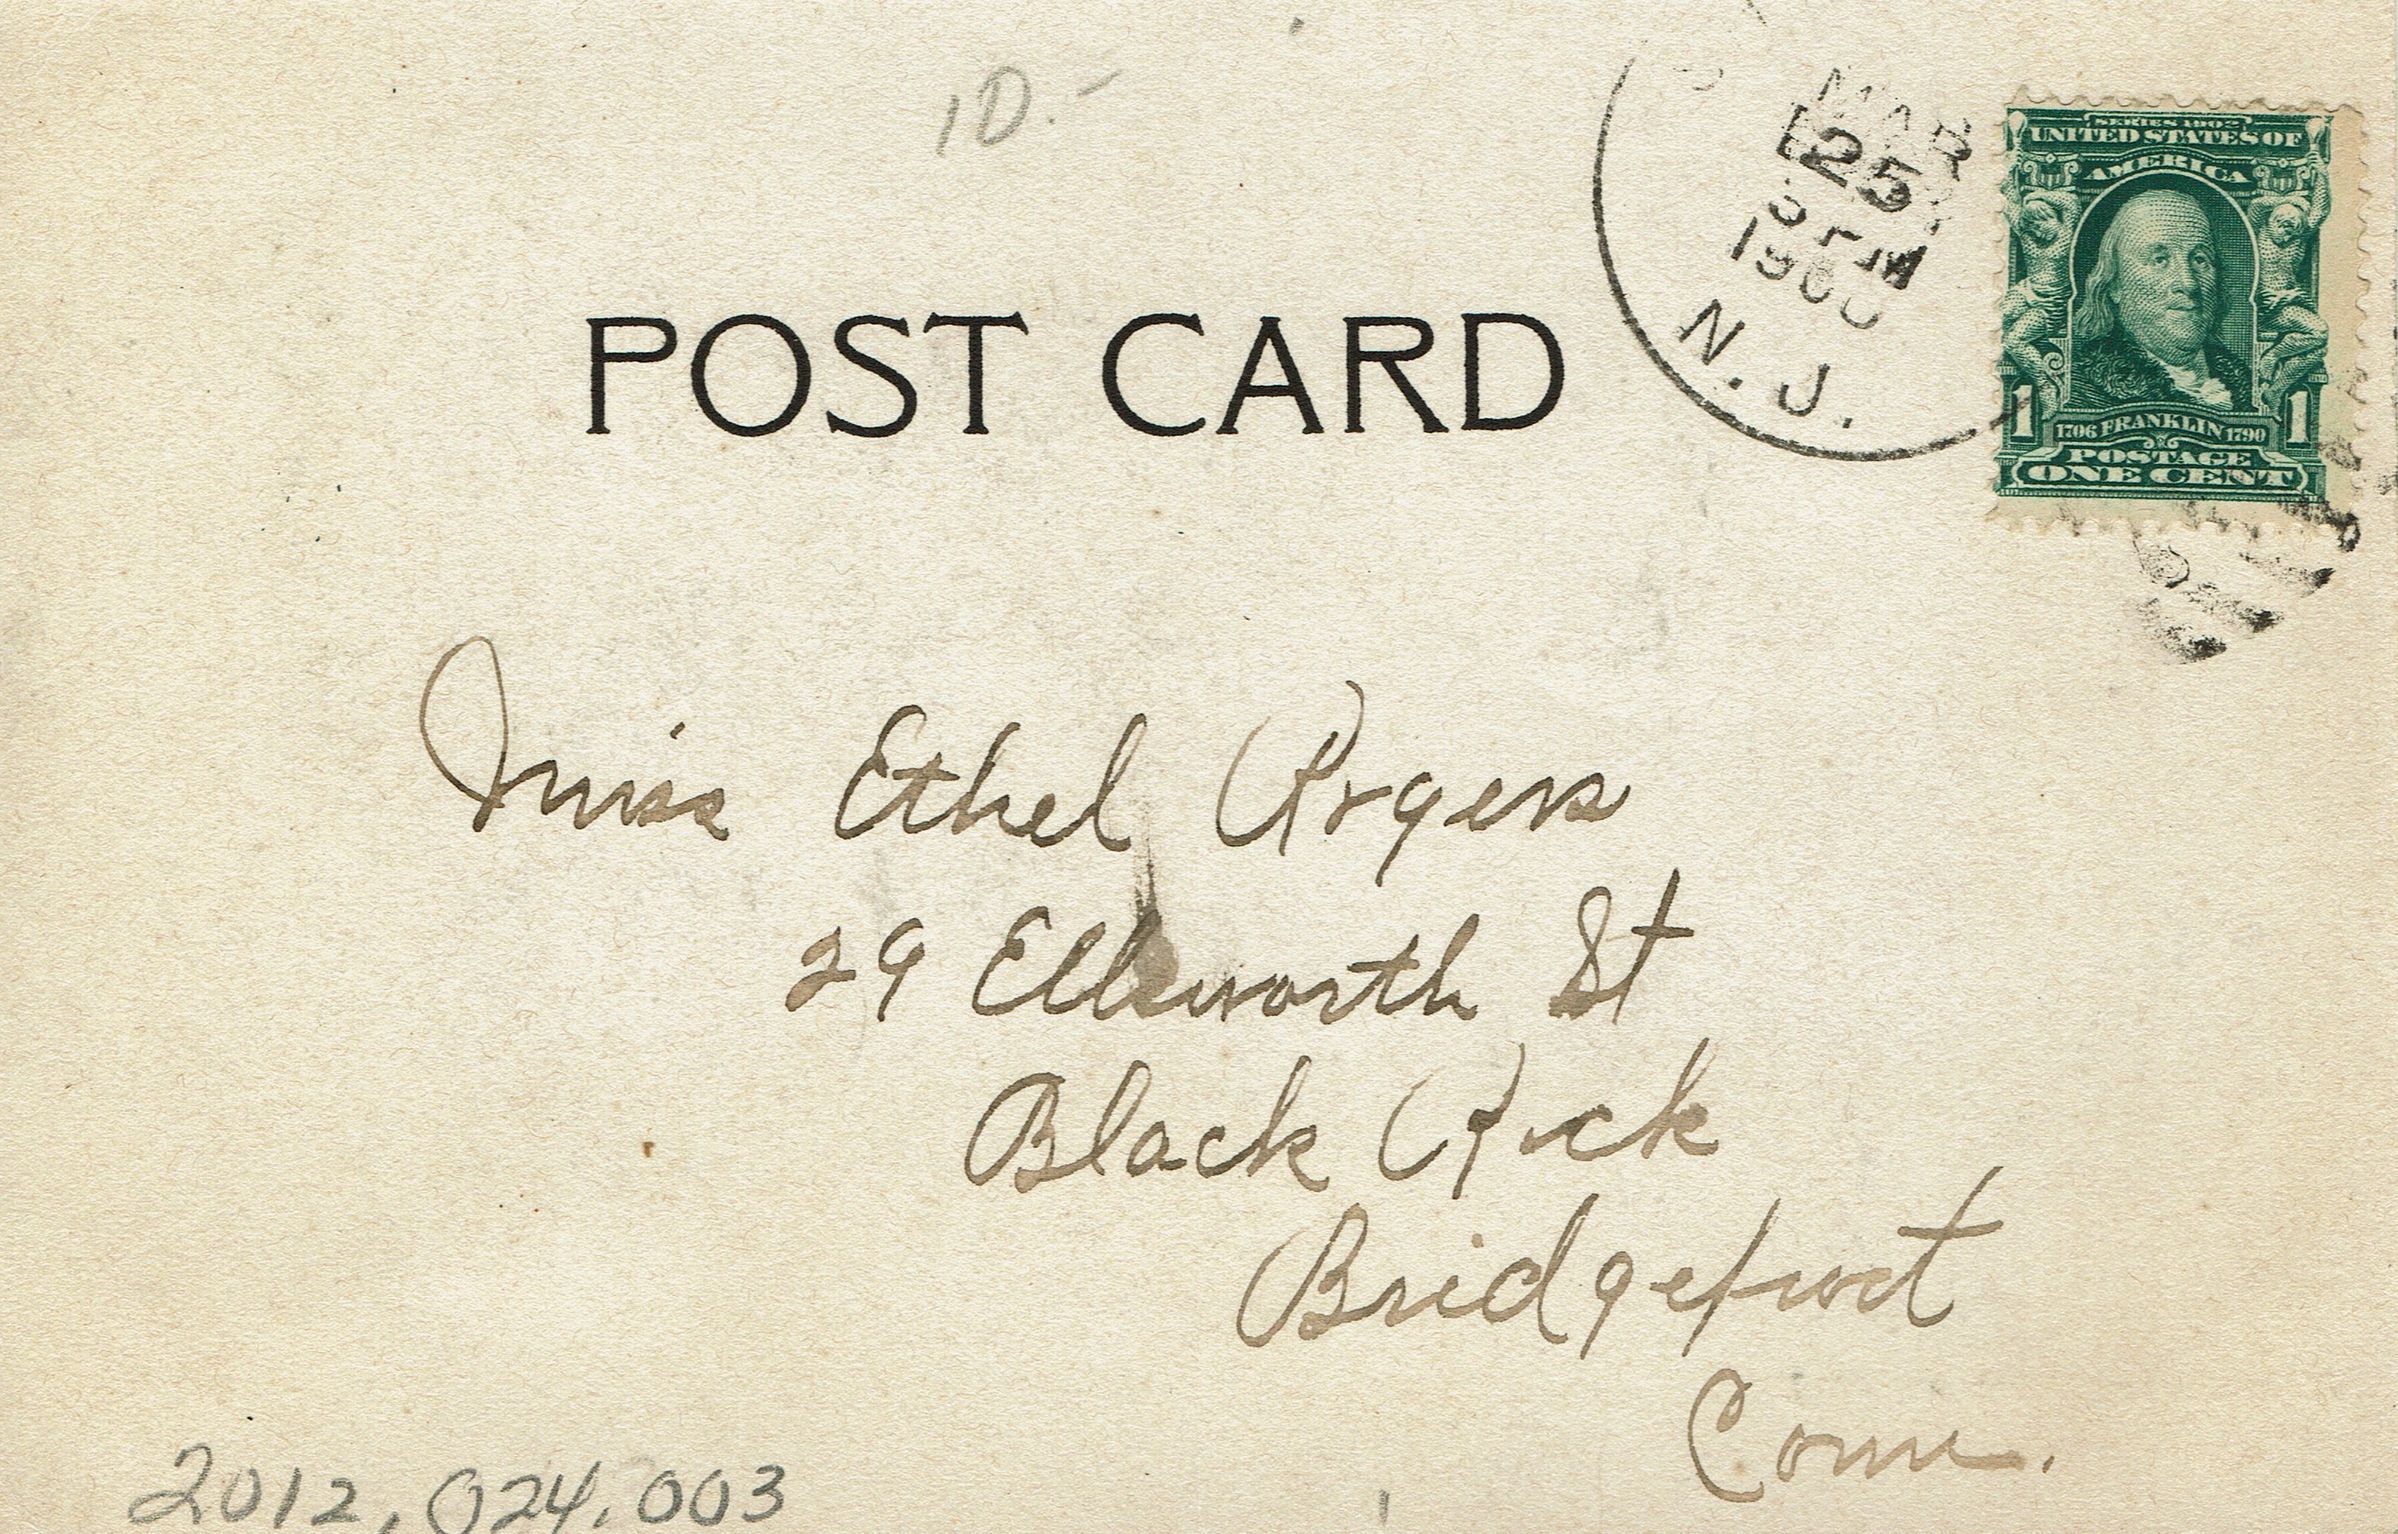 10.-
MAR
25
PM
N. J.
SERIES 1902
UNITED STATES OF
AMERICA
1 1706 FRANKLIN 1790 1
POSTAGE
ONE CENT
POST CARD
Miss Ethel Rogers
29 Ellsworth St
Black Rock
Bridgeport
Conn.
2012.024.003